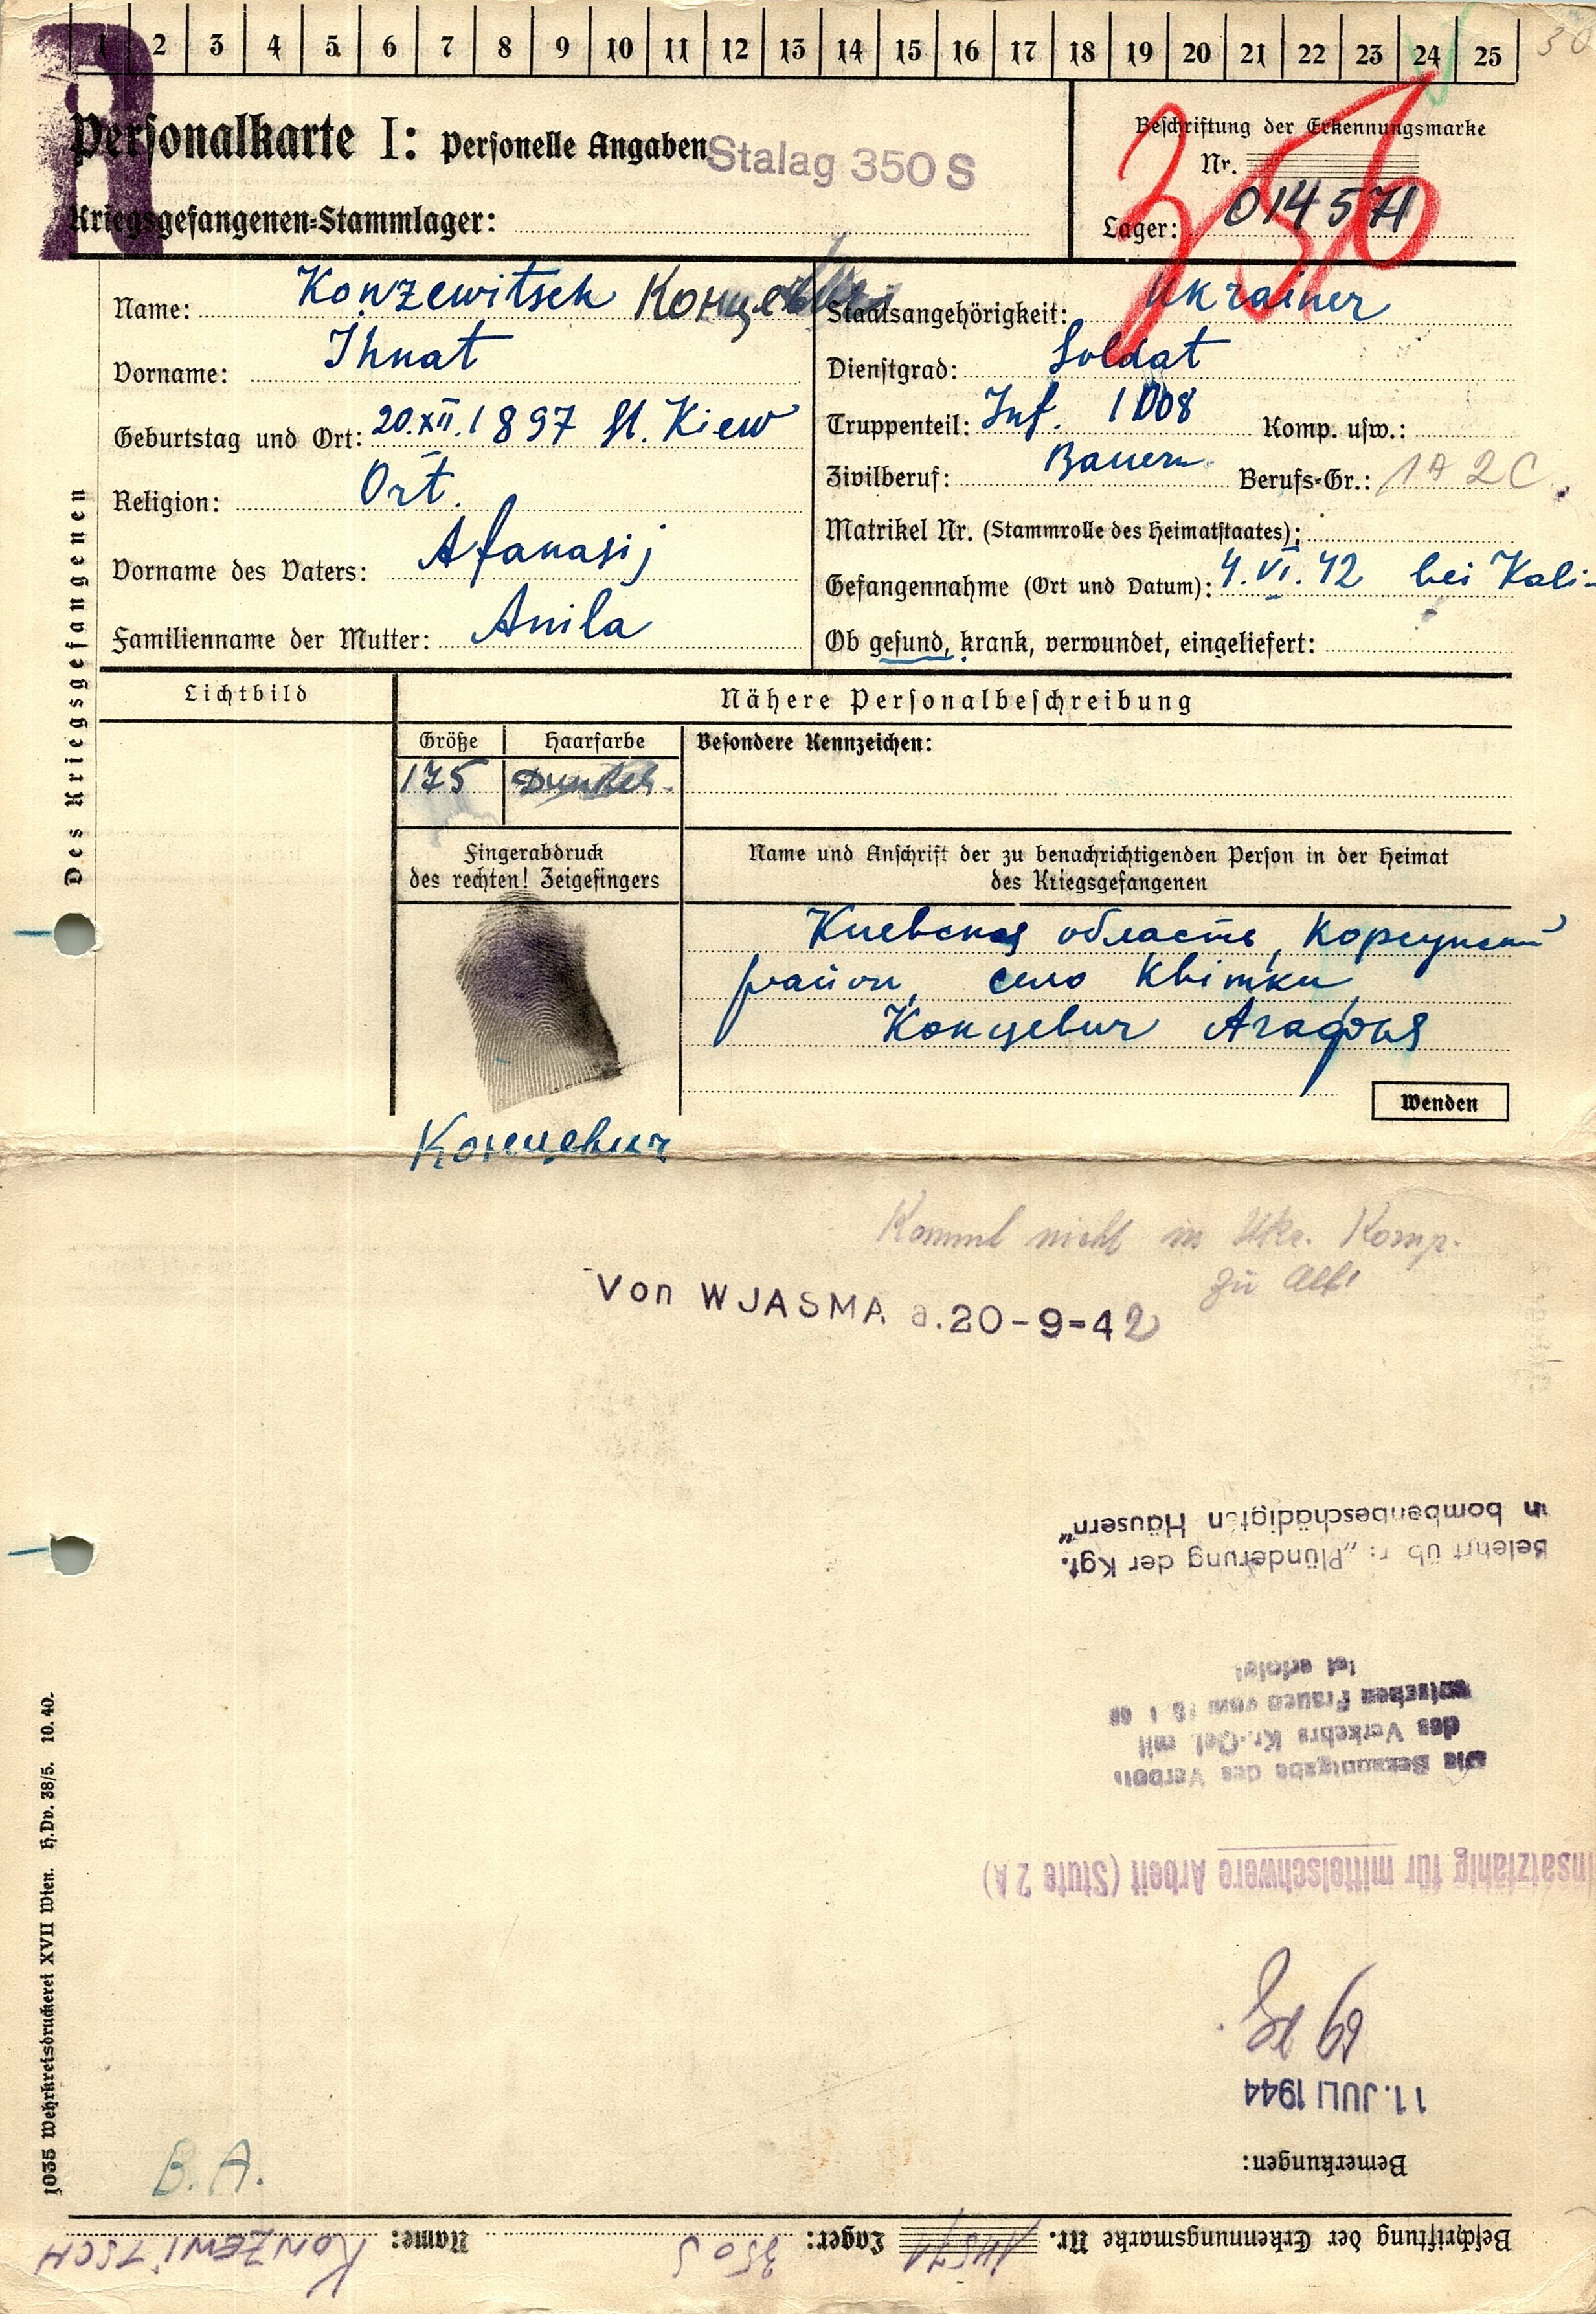 1 2 3 4 5 6 7 8 9 10 11 12 13 14 15 16 17 18 19 20 21 22 23 24 25 30
Personalkarte I: Personelle Angaben Stalag 350 S
Kriegsgefangenen-Stammlager:
Beschriftung der Erkennungsmarke
Nr.
Lager: 014571
350
Name: Konzewitsch
Vorname: Ihnat
Geburtstag und Ort: 20.XII.1897 St. Kiew
Religion: Ort.
Vorname des Vaters: Afanasij
Familienname der Mutter: Anila
Staatsangehörigkeit: Ukrainer
Dienstgrad: Soldat
Truppenteil: Inf. 1008 Komp. usw.:
Zivilberuf: Bauern Berufs-Gr.: 1A 2C
Matrikel Nr. (Stammrolle des Heimatstaates):
Gefangennahme (Ort und Datum): 4.VI.42 bei Kali-
Ob gesund, krank, verwundet, eingeliefert:
Des Kriegsgefangenen
Lichtbild
Nähere Personalbeschreibung
Größe Haarfarbe Besondere Kennzeichen:
175 Dunkel.
Fingerabdruck
des rechten! Zeigefingers
Name und Anschrift der zu benachrichtigenden Person in der Heimat
des Kriegsgefangenen
Киевская область, Корсунский
район, село Квітки
Концевич Агафья
Wenden
Концевич
Kommt nicht in Ukr. Komp.
zu alt!
Von WJASMA a. 20-9-42
Beschriftung der Erkennungsmarke Nr. 14571 Lager: 350 S Name: KONZEWITSCH
Bemerkungen:
11. JULI 1944
insatzfähig für mittelschwere Arbeit (Stufe 2 A)
Die Bekanntgabe des Verbots
des Verkehrs Kr.-Gef. mit
deutschen Frauen vom
ist erfolgt
Belehrt üb r: „Plünderung der Kgf.
in bombenbeschädigten Häusern"
B.A.
1035 Wehrkreisdruckerei XVII Wien. H.Dv. 38/5. 10. 40.